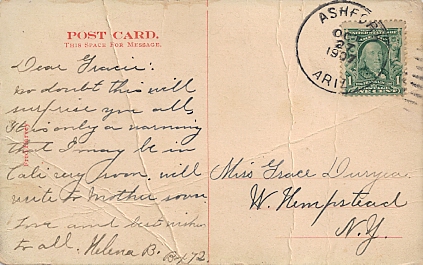 POST CARD.
THIS SPACE FOR MESSAGE.
Dear Gracie:
no doubt this will
surprise you all,
It is only a warning
that I may be in
Cali very soon. will
write to Mother soon
Love and best wishes
to all. Helena B.
Bx 72.
ASHFORK
OCT
190
ARIZ
1
Miss Grace Duryea
W. Hempstead
N.Y.